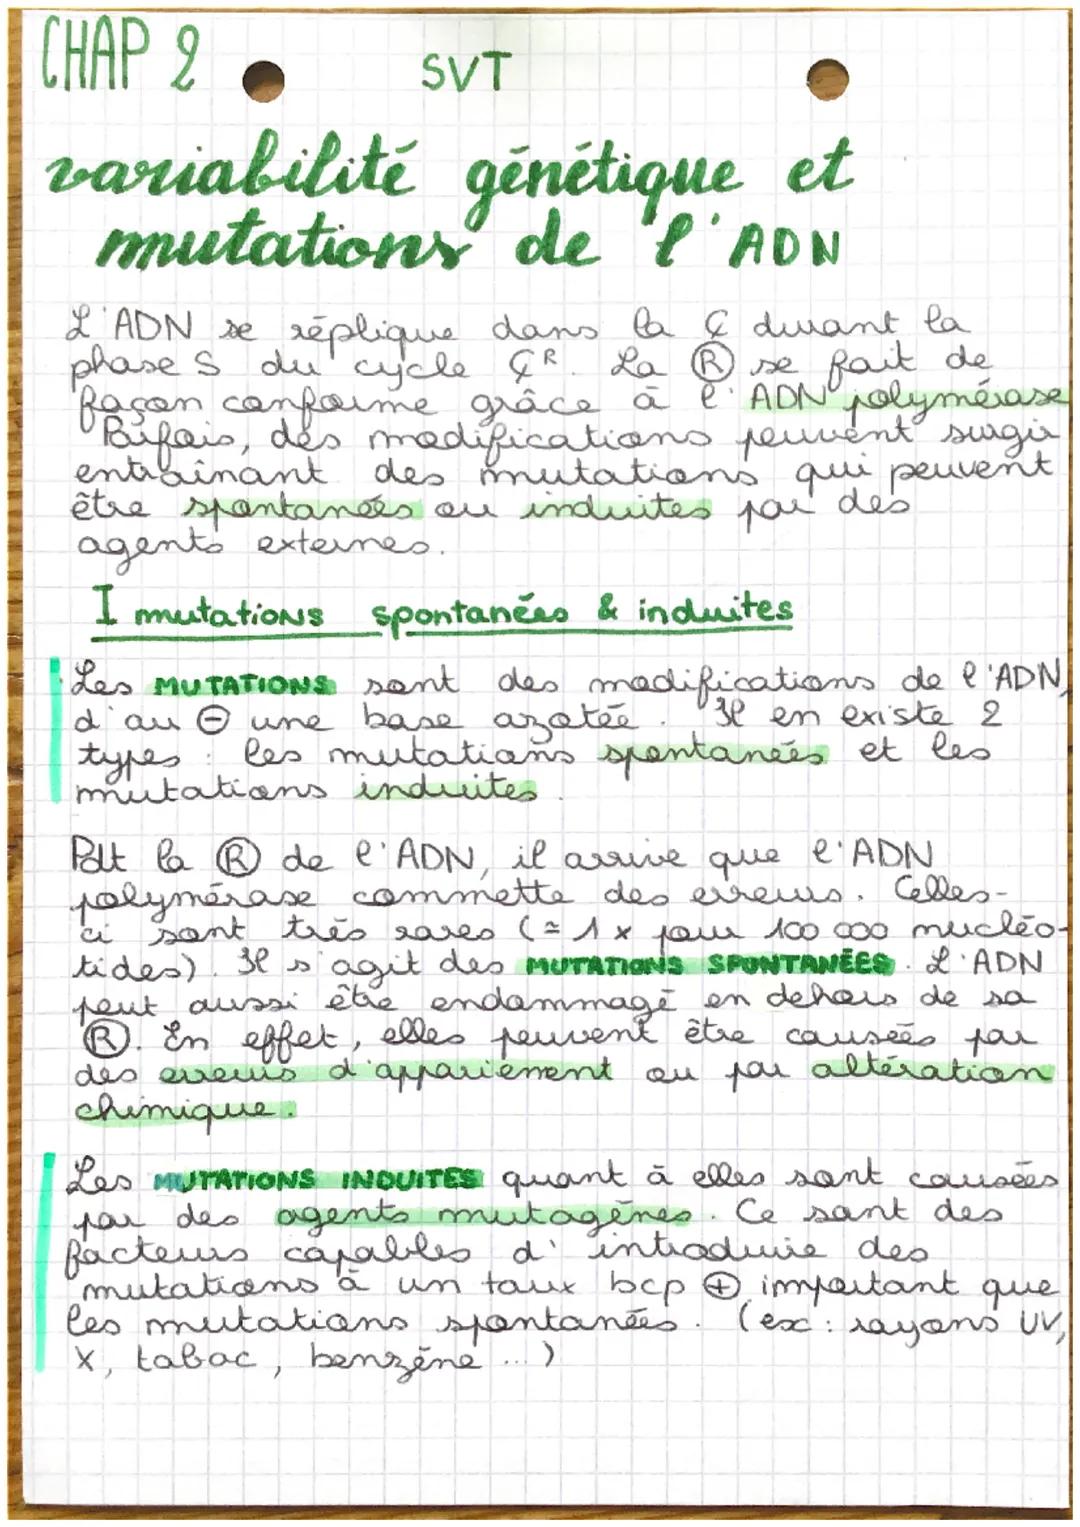 CHAP 2
SVT
variabilité génétique et
mutations de l'ADN
L'ADN se réplique dans la ₵ durant la
phase S du cycle ₵ᴿ. La Ⓡ se fait de
façon conforme grâce à l'ADN polymérase
Parfois, des modifications peuvent surgir
entraînant des mutations qui peuvent
être spontanées ou induites par des
agents externes.
I mutations spontanées & induites
Les MUTATIONS sont des modifications de l'ADN,
d'au ⊖ une base azotée. Il en existe 2
types : les mutations spontanées et les
mutations induites.
Pdt la Ⓡ de l'ADN, il arrive que l'ADN
polymérase commette des erreurs. Celles-
ci sont très rares (≃ 1x pour 100 000 nucléo-
tides). Il s'agit des MUTATIONS SPONTANÉES. L'ADN
peut aussi être endommagé en dehors de sa
Ⓡ. En effet, elles peuvent être causées par
des erreurs d'appariement ou par altération
chimique.
Les MUTATIONS INDUITES quant à elles sont causées
par des agents mutagènes. Ce sont des
facteurs capables d'introduire des
mutations à un taux bcp ⊕ important que
les mutations spontanées. (ex : rayons UV,
X, tabac, benzène ...)